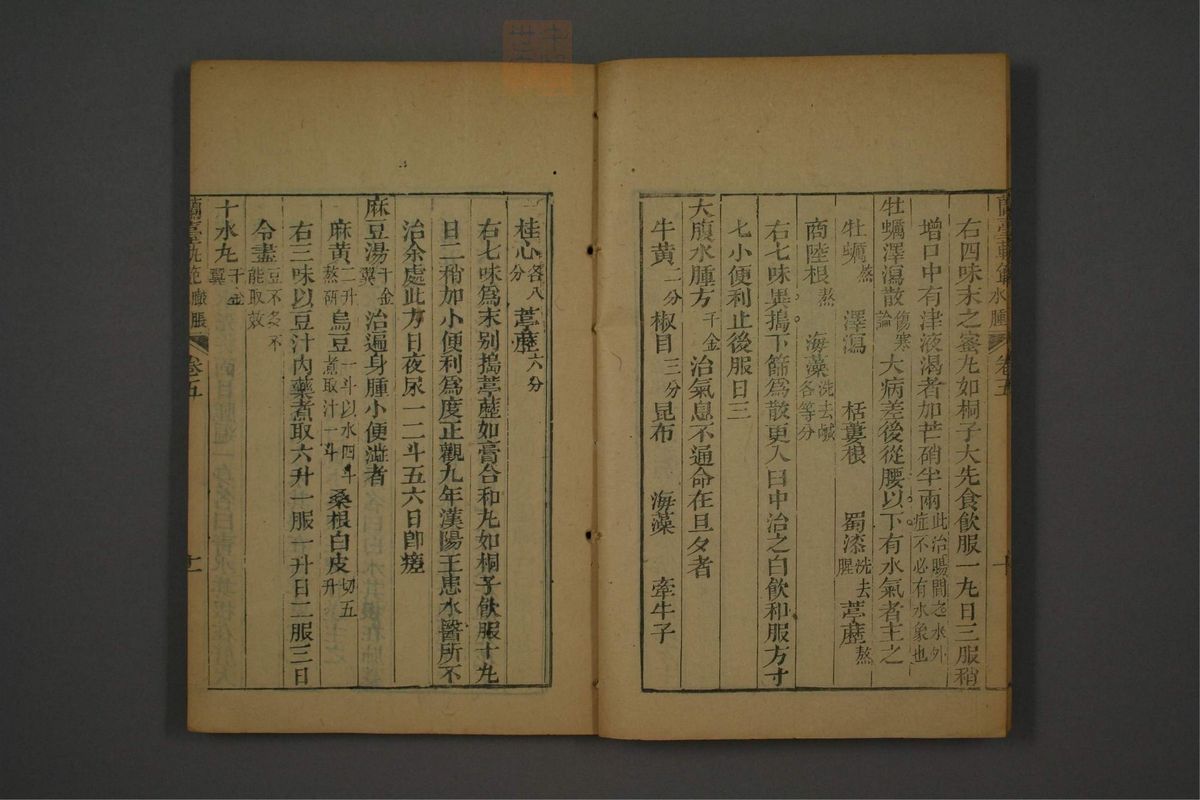 蘭臺軌範 水腫 卷五 十
右四味末之蜜丸如桐子大先食飲服一丸日三服稍
增口中有津液渴者加芒硝半兩此治腸間之水外症不必有水象也
牡蠣澤瀉散傷寒論 大病差後從腰以下有水氣者主之
牡蠣熬 澤瀉 栝蔞根 蜀漆洗去腥 葶藶熬
商陸根熬 海藻洗去鹹各等分
右七味異搗下篩為散更入臼中治之白飲和服方寸
七小便利止後服日三
大腹水腫方千金 治氣息不通命在旦夕者
牛黃二分 椒目三分 昆布 海藻 牽牛子
桂心各八分 葶藶六分
右七味為末別搗葶藶如膏合和丸如桐子飲服十丸
日二稍加小便利為度正觀九年漢陽王患水醫所不
治余處此方日夜尿一二斗五六日卽瘥
麻豆湯千金翼 治遍身腫小便澁者
麻黃二升熬研 烏豆一斗以水四斗煮取汁一斗 桑根白皮切五升
右三味以豆汁內藥煮取六升一服一升日二服三日
令盡豆不多不能取效
十水丸千金翼
蘭臺軌範 臌脹 卷五 十一